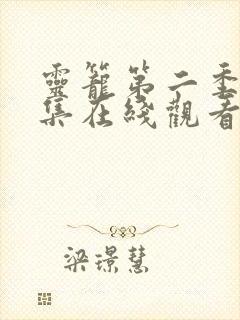 靈籠第二季
集在綫觀看
梁璟慧